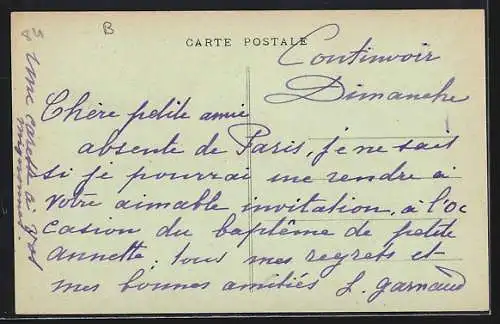 B
CARTE POSTALE
Continvoir
Dimanche
Chère petite amie
absente de Paris, je ne sait
si je pourrai me rendre à
votre aimable invitation, à l'oc
casion du baptême de petite
annette. tous mes regrets et
mes bonnes amitiés L. Garnaud
une caresse à
mignonne.